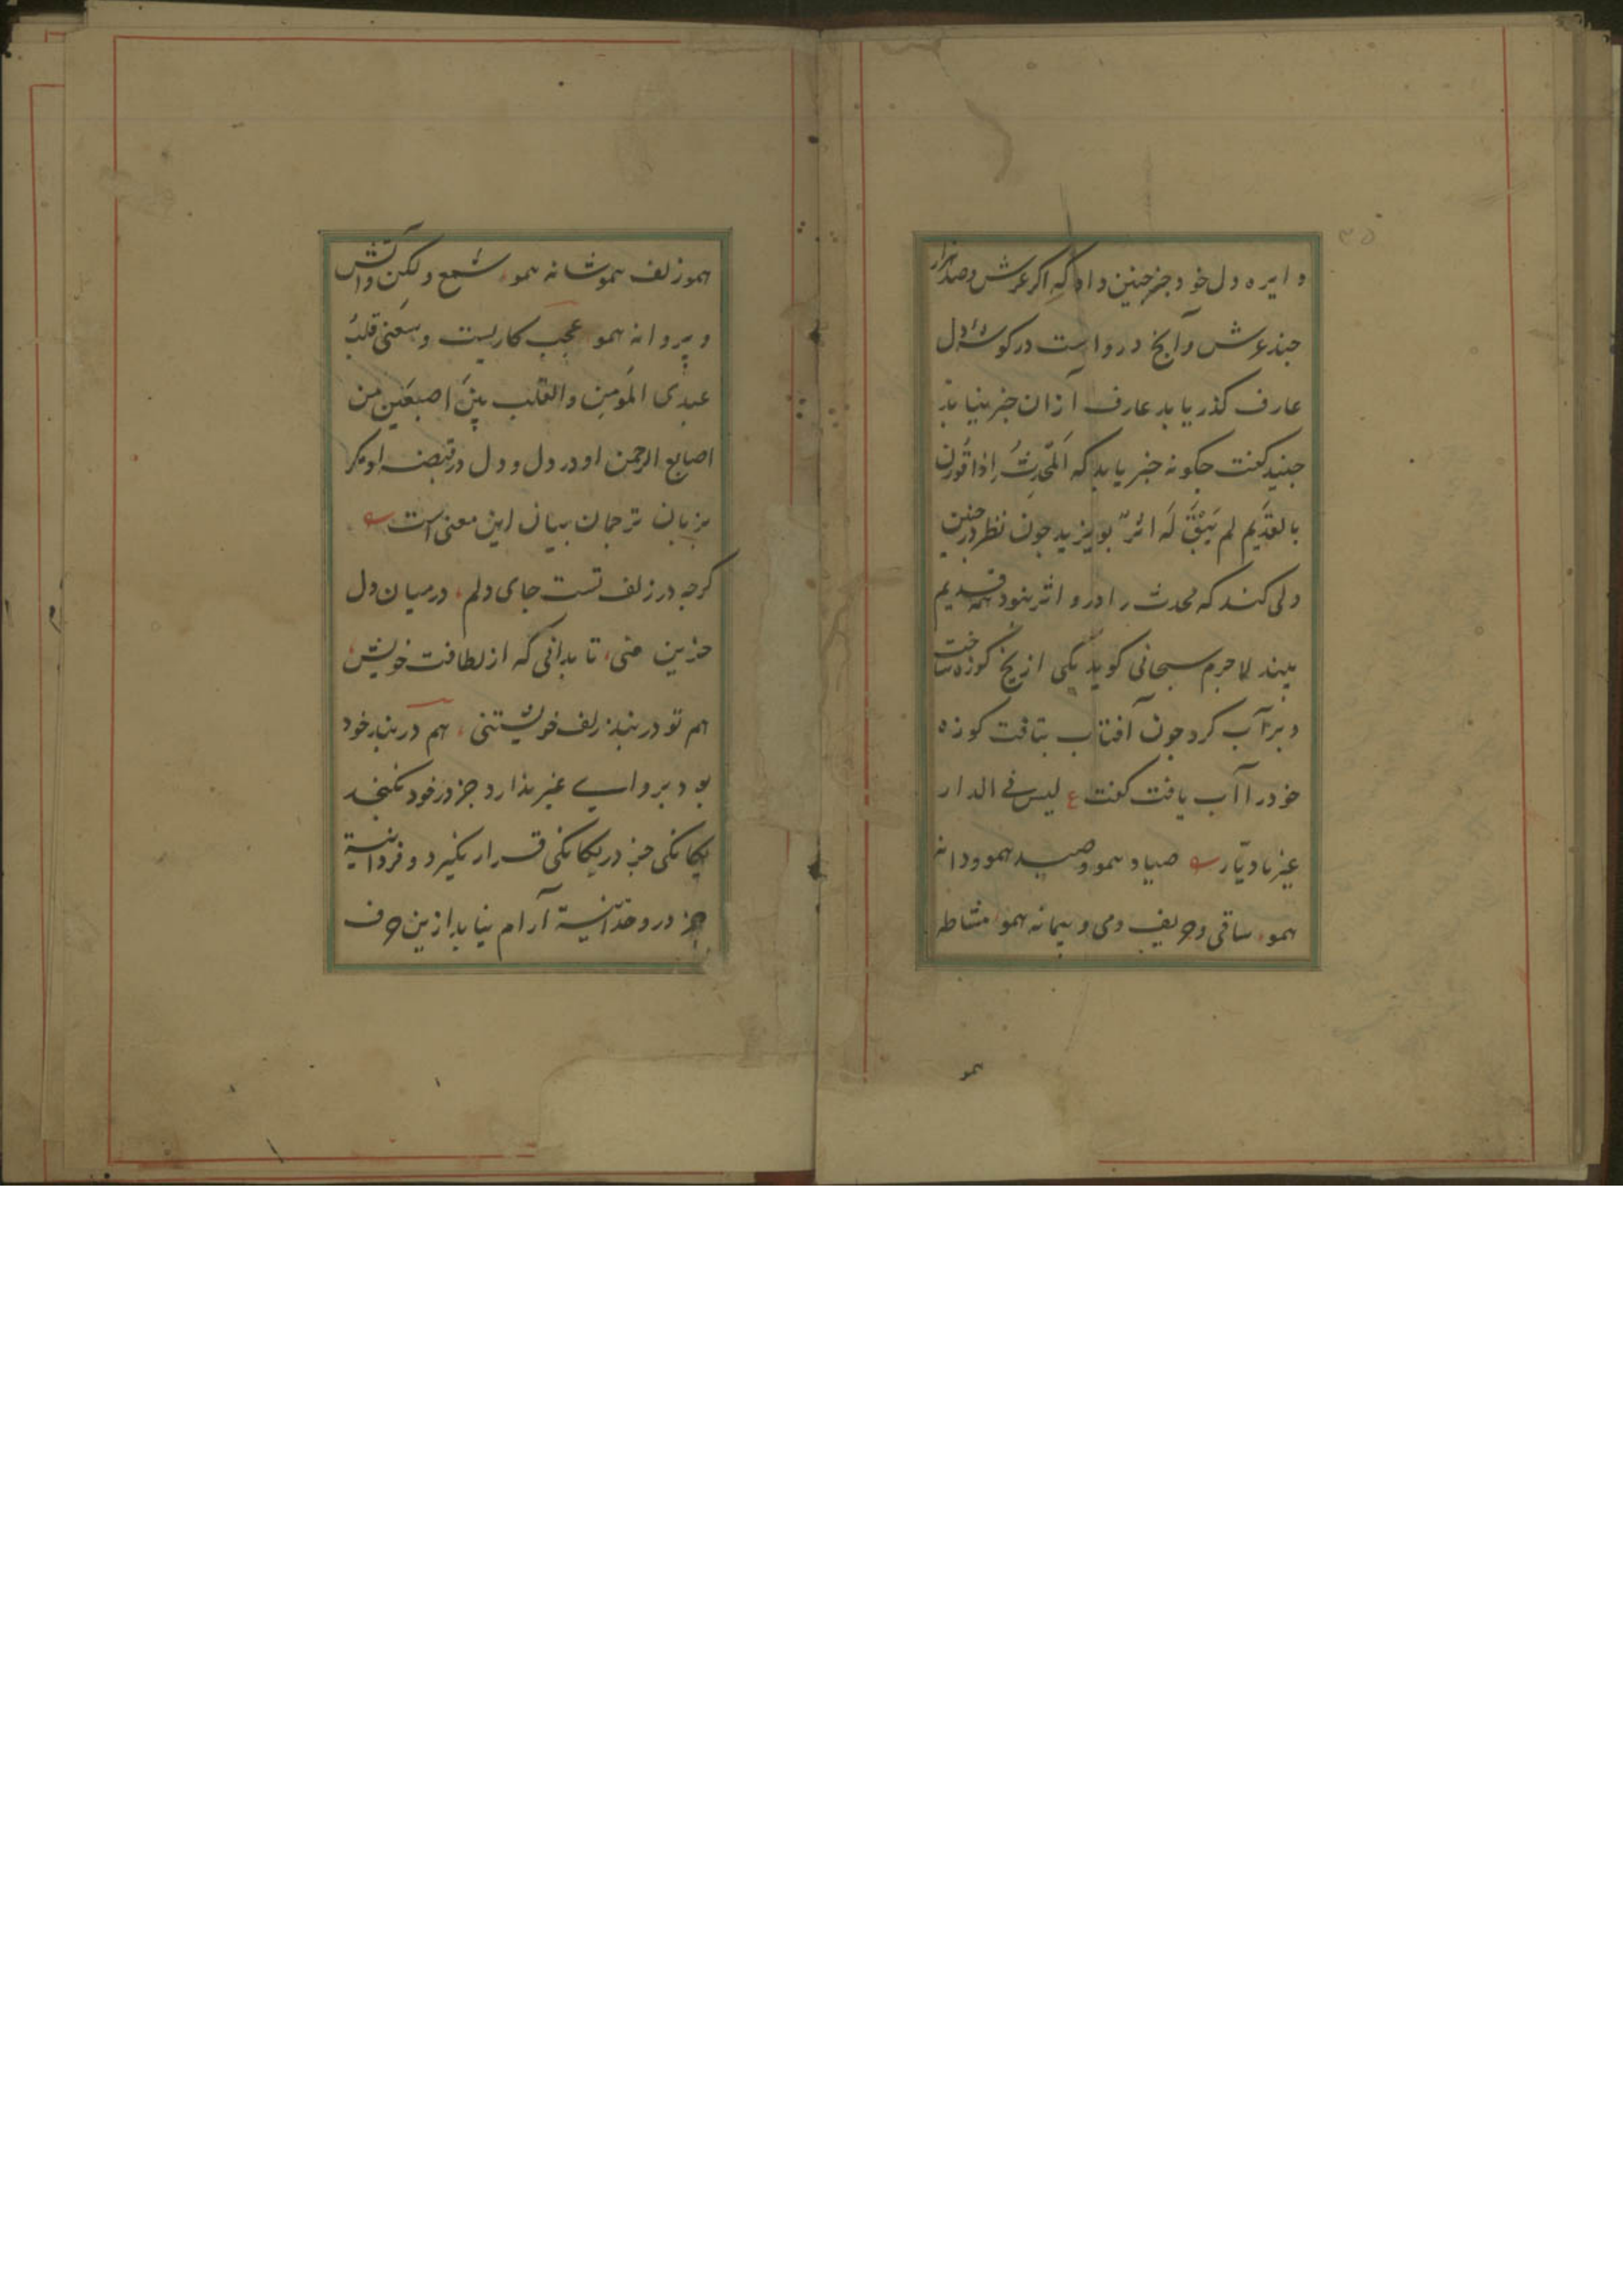 دایره دل خود خبر چنین داد که اگر عرش و صد هزار
چند عرش و آنچ دروست در کوشه دل
عارف کذر یابد عارف ازان خبر نیابد
جنید کفت چکونه خبر یابد که اَلمُحدِثُ اِذا قُورِنَ
بالقدَیمِ لم یَبْقَ لَه اَثرٌ بویزید چون نظر در چنین
دلی کند که محدث را درو اثر نبود همه قدیم
بیند لاجرم سبحانی کوید یکی از یخ کوزه ساخت
و پر آب کرد چون آفتاب بتافت کوزه
خود را آب یافت کفت ع لیس فی الدار
غیرنا دیّار صیاد همو و صید همو و دانه
همو ساقی و حریف و می و پیمانه همو مشاطه
همو
همو زلف همو شانه همو شمع و لکن و آتش
و پروانه همو عجب کاریست وسعنی قلبُ
عبدی المُومِنِ والقَلب بینَ اِصبَعَین من
اصابع الرحمن او در دل و دل در قبضه او مکر
بزبان ترجمان بیان این معنی است
کرچه در زلف تست جای دلم در میان دل
حزین منی تا بدانی که از لطافت خویش
هم تو در بند زلف خویشتنی هم در بند خود
بود پروای غیر ندارد جز در خود نکنجد
یکانکی جز در یکانکی قرار نکیرد و فردانیة
جز در وحدانیة آرام نیابد ازین حرف